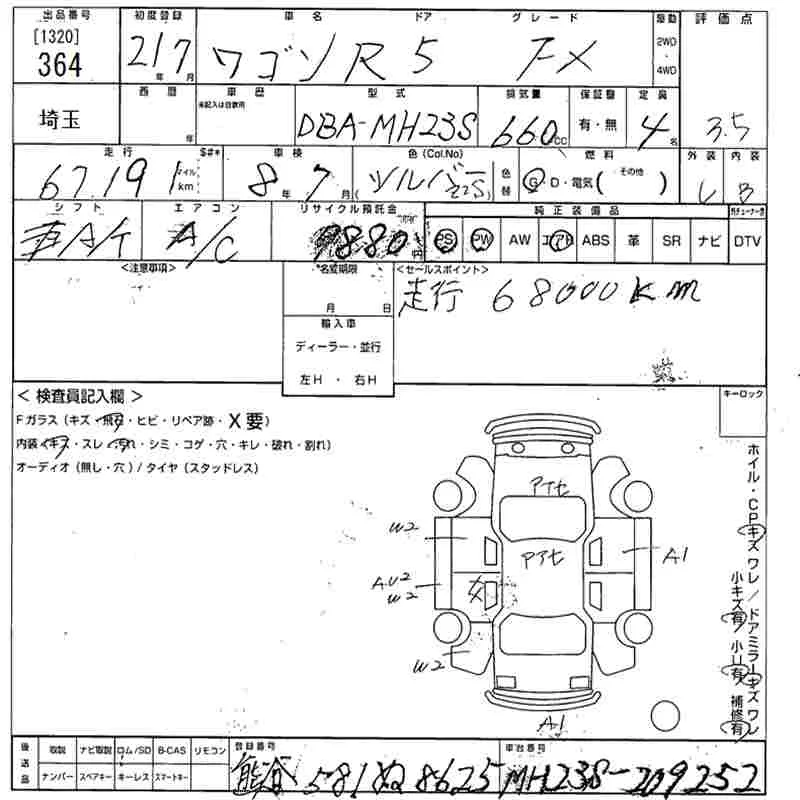 出品番号 初度登録 車名 ドア グレード 駆動 評価点
[1320] 364 21年7月 ワゴンR 5 FX 2WD・4WD
西暦 車歴 型式 排気量 保証書 定員
埼玉 年 未記入は自家用 DBA-MH23S 660cc 有・無 4名 3.5
走行 $#* 車検 色 (Col.No) 色替 燃料 外装 内装
67,191 マイル km 8年7月 シルバー(Z2S) G・D・電気( その他 ) B
シフト エアコン リサイクル預託金 純正装備品
A/T A/C 9880円 PS PW AW エアB ABS 革 SR ナビ DTV
<注意事項> 名変期限 <セールスポイント>
走行 68000km
月 日
輸入車
ディーラー・並行
左H ・ 右H
< 検査員記入欄 > キーロック
Fガラス (キズ・飛石・ヒビ・リペア跡・X要)
内装 (キズ・スレ・汚れ・シミ・コゲ・穴・キレ・破れ・割れ)
オーディオ (無し・穴) / タイヤ (スタッドレス)
アイセ
W2
アイセ A1
A.U2
W2
W2
A1
ホイル・CPキズワレ/ドアミラーキズワレ
小キズ有 小U有 補修有
後送品 取説 ナビ取説 ロム/SD B-CAS リモコン 登録番号 車台番号
ナンバー スペアキー キーレス スマートキー 熊谷 581ぬ8625 MH23S-209252